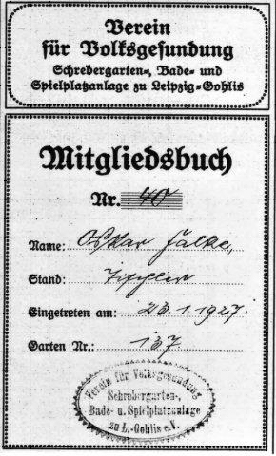 Verein
für Volksgesundung
Schrebergarten-, Bade- und
Spielplatzanlage zu Leipzig-Gohlis
Mitgliedsbuch
Nr. 40
Name: Oskar
Stand:
Eingetreten am: 23.1.1927.
Garten Nr.: 137
Verein für Volksgesundung
Schrebergarten-,
Bade- u. Spielplatzanlage
zu L.-Gohlis e.V.